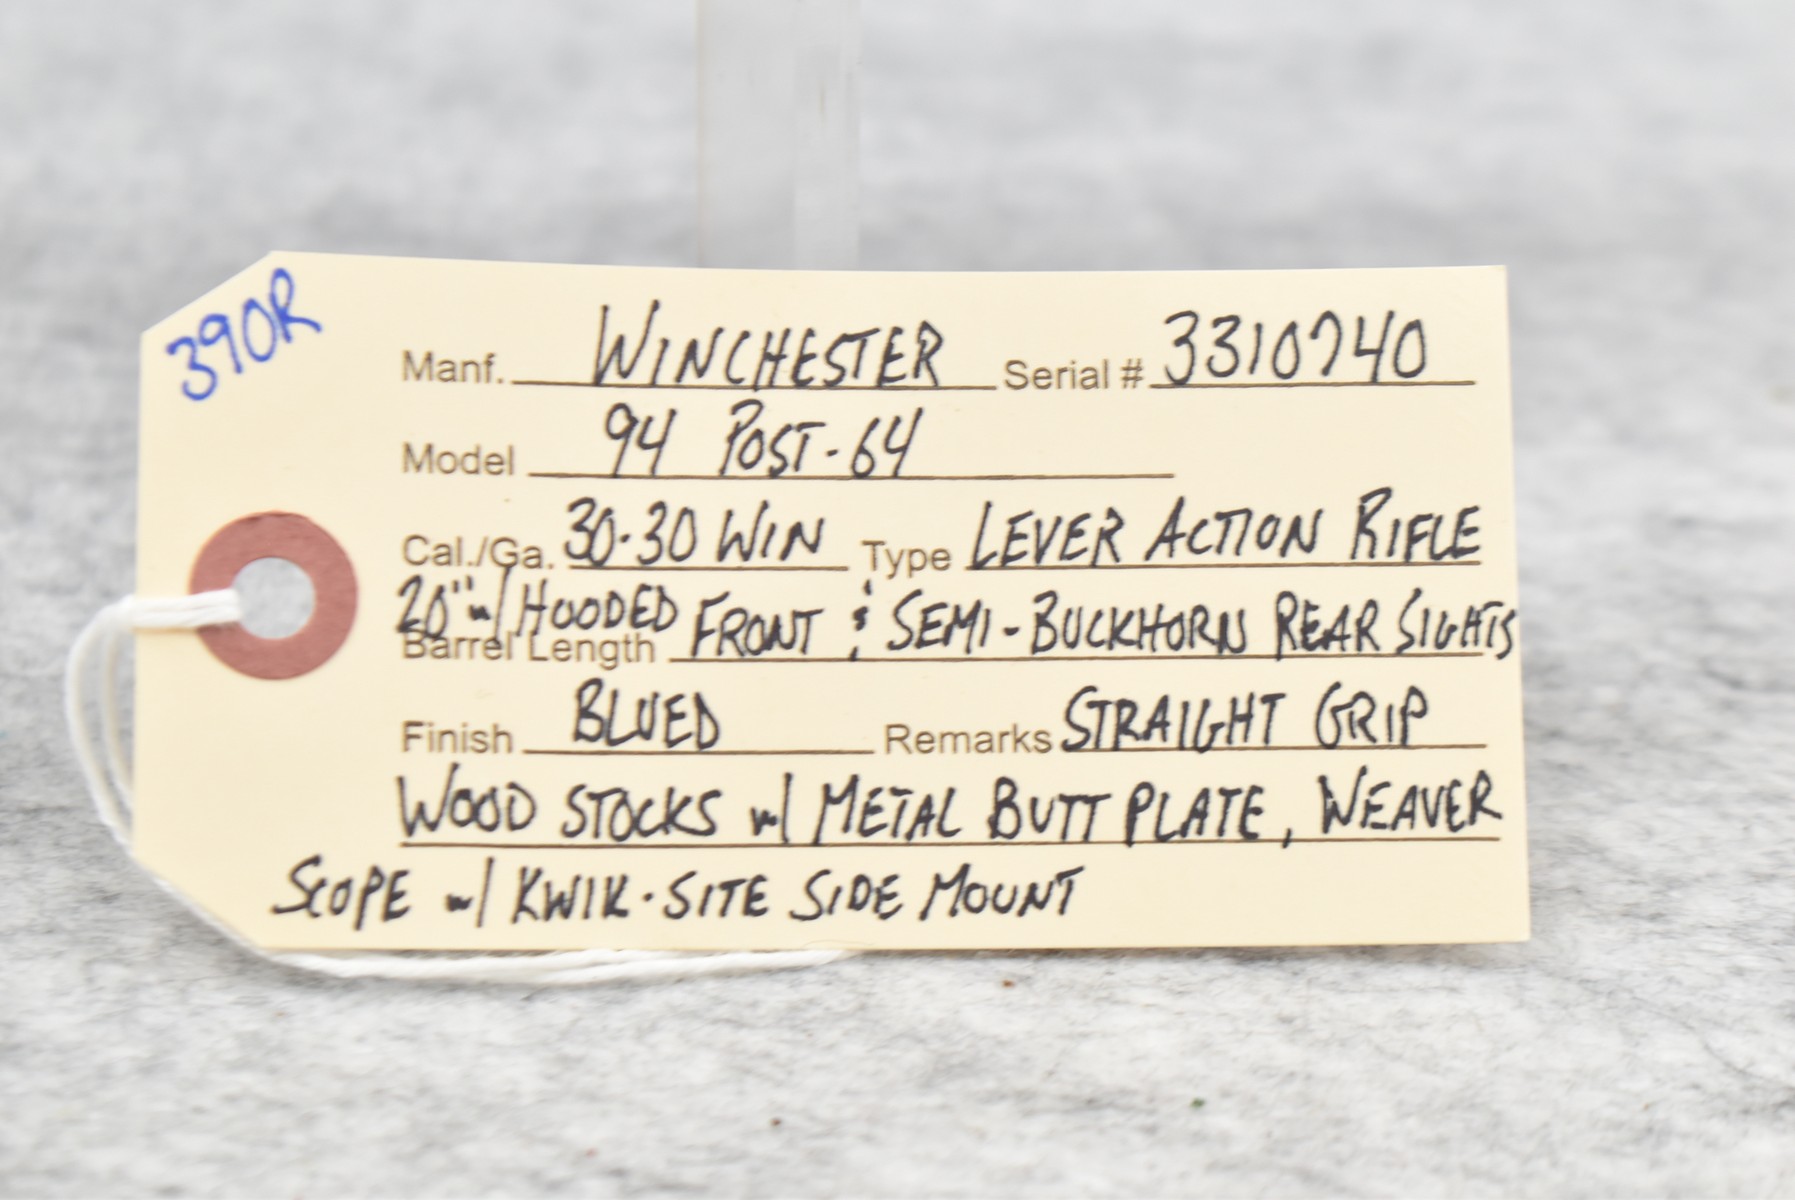 390R
Manf. WINCHESTER Serial # 3310740
Model 94 POST-64
Cal./Ga. 30-30 WIN Type LEVER ACTION RIFLE
20" w/ HOODED FRONT & SEMI-BUCKHORN REAR SIGHTS
Barrel Length
Finish BLUED Remarks STRAIGHT GRIP
WOOD STOCKS w/ METAL BUTT PLATE, WEAVER
SCOPE w/ KWIK-SITE SIDE MOUNT